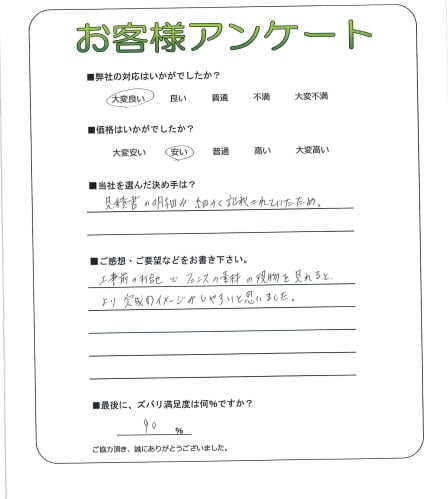 お客様アンケート
■弊社の対応はいかがでしたか？
大変良い 良い 普通 不満 大変不満
■価格はいかがでしたか？
大変安い 安い 普通 高い 大変高い
■当社を選んだ決め手は？
見積書の明細が細かく記載されていたため。
■ご感想・ご要望などをお書き下さい。
工事前の打合せでフェンスの素材の現物を見れると、
より完成のイメージがしやすいと思いました。
■最後に、ズバリ満足度は何%ですか？
90 %
ご協力頂き、誠にありがとうございました。